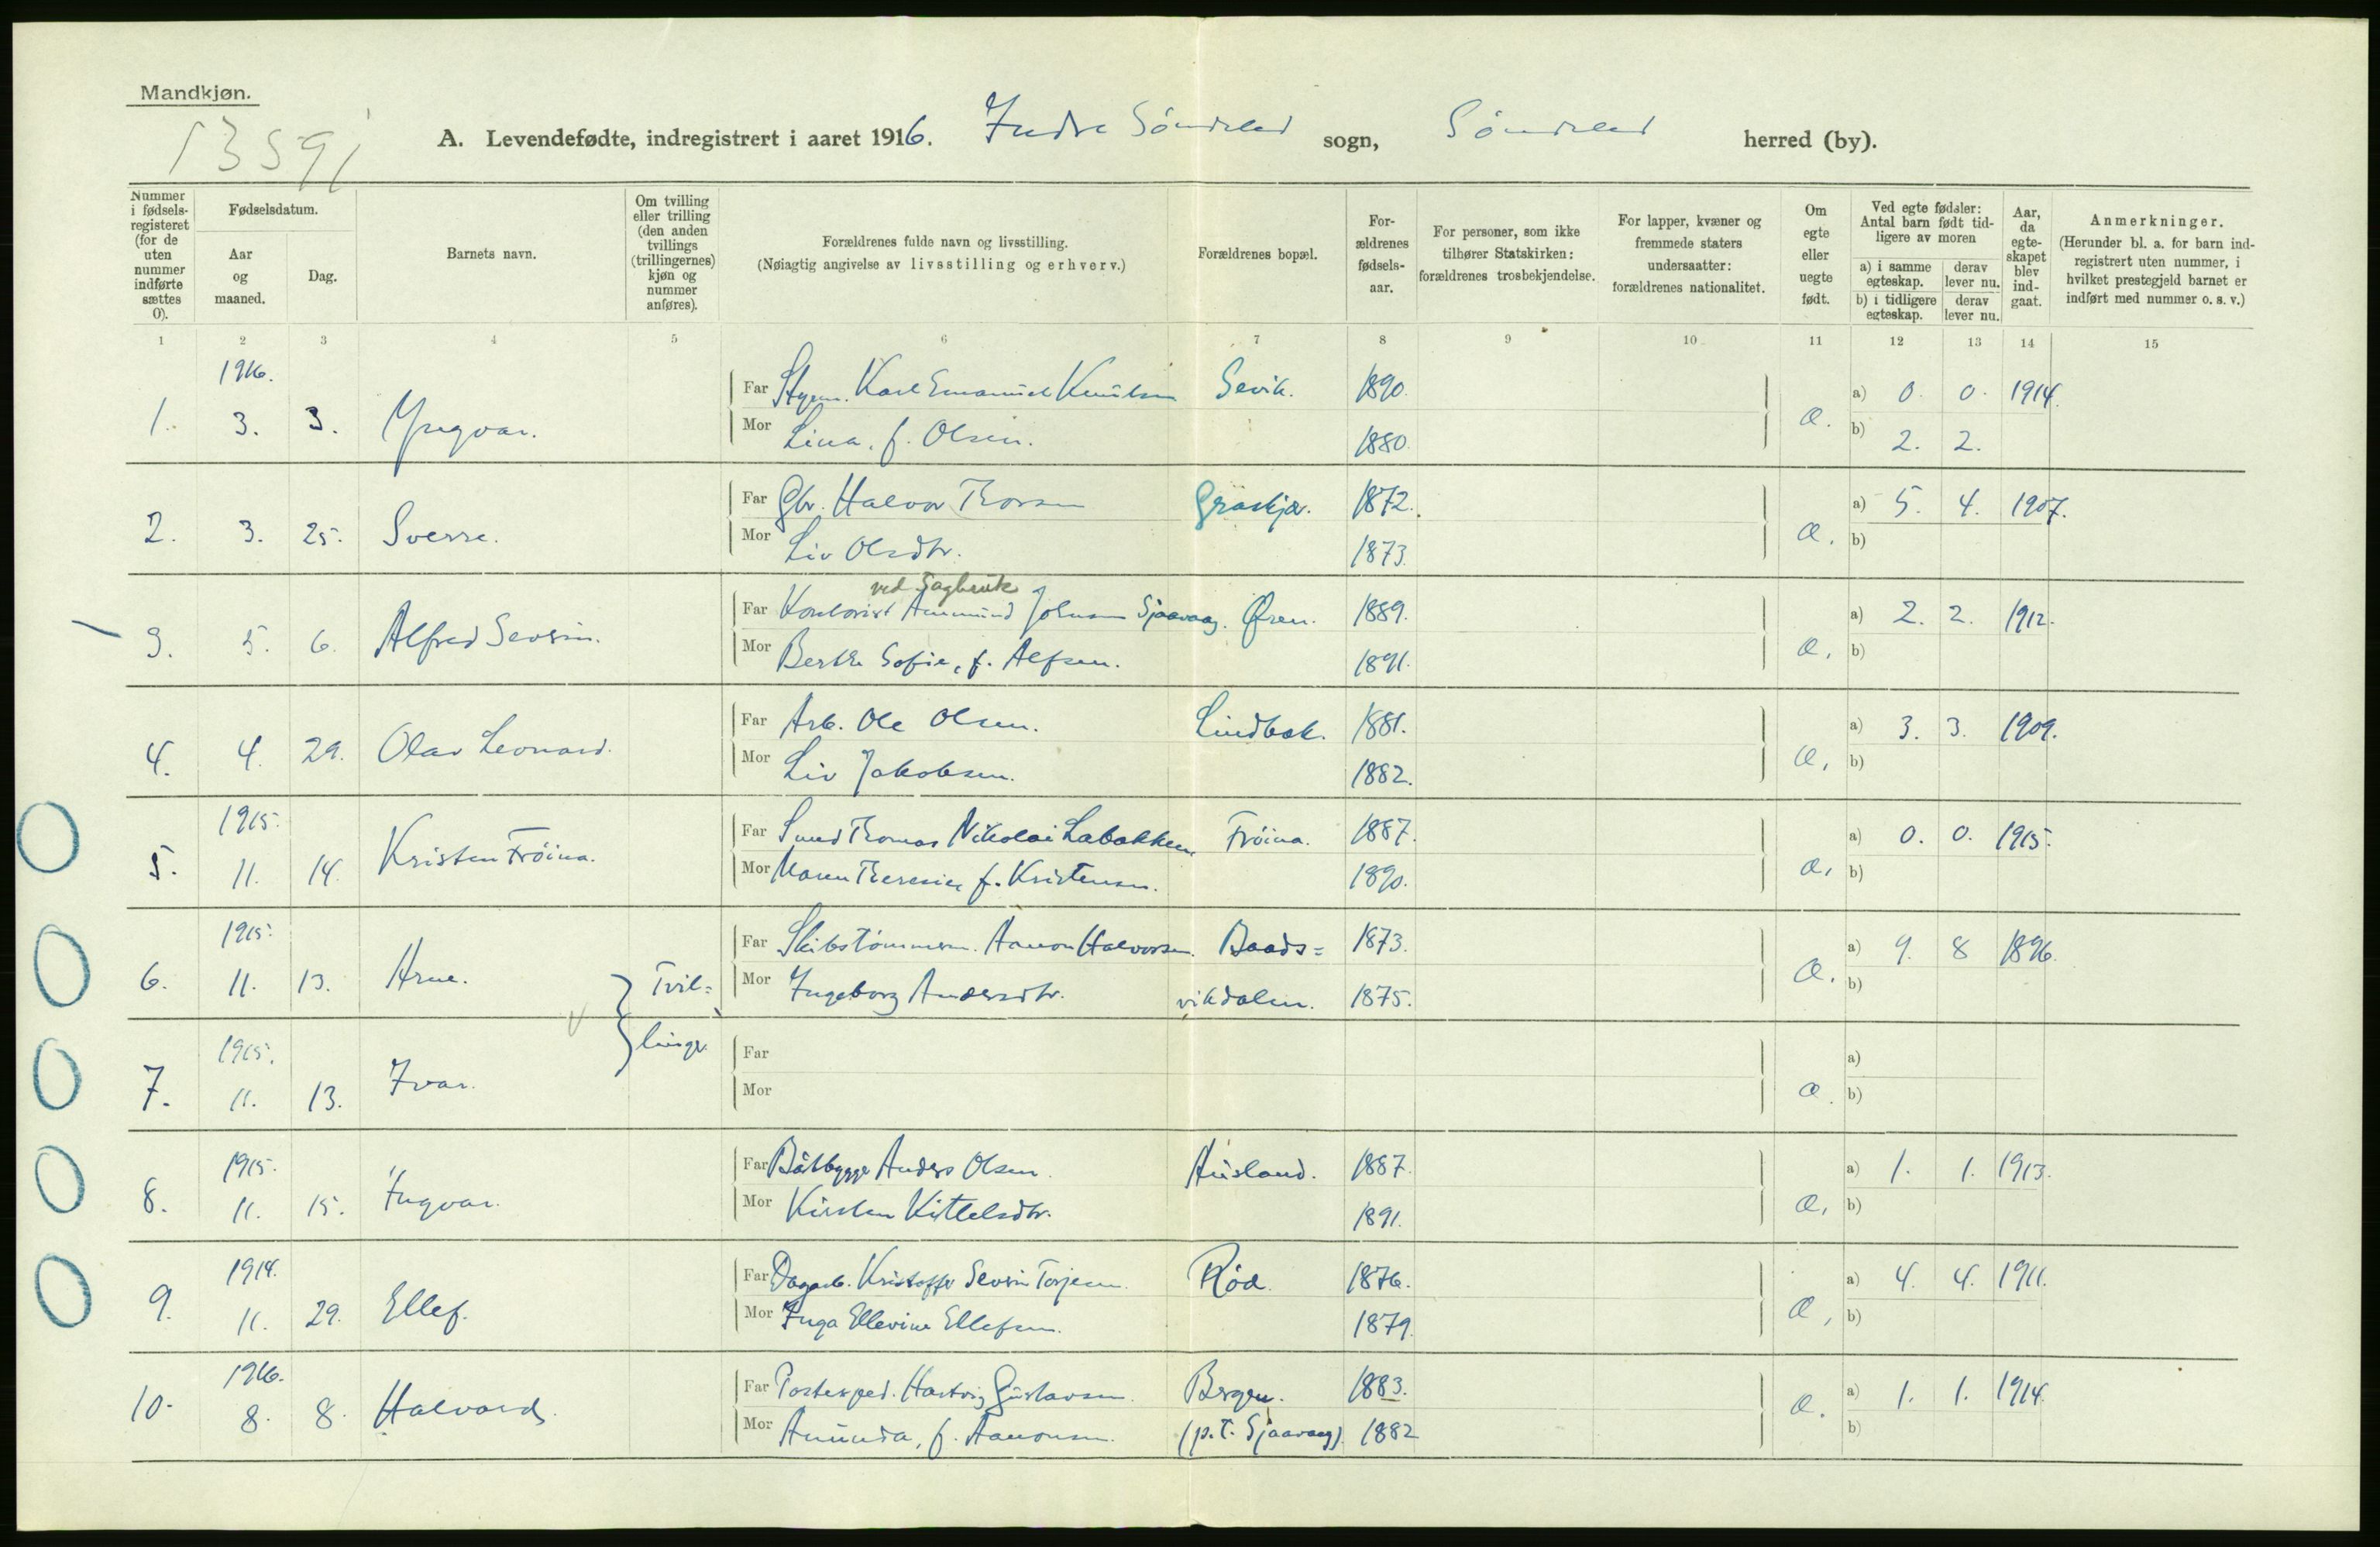 Mandkjøn.
13591
A. Levendefødte, indregistrert i aaret 1916. Indre Söndeled sogn, Söndeled herred (by).
Nummer i fødselsregisteret (for de uten nummer indførte sættes 0).
Fødselsdatum.
Aar og maaned.
Dag.
Barnets navn.
Om tvilling eller trilling (den anden tvillings (trillingernes) kjøn og nummer anføres).
Forældrenes fulde navn og livsstilling.
(Nøiagtig angivelse av livsstilling og erhverv.)
Forældrenes bopæl.
Forældrenes fødselsaar.
For personer, som ikke tilhører Statskirken: forældrenes trosbekjendelse.
For lapper, kvæner og fremmede staters undersaatter: forældrenes nationalitet.
Om egte eller uegte født.
Ved egte fødsler: Antal barn født tidligere av moren
a) i samme egteskap. derav lever nu.
b) i tidligere egteskap. derav lever nu.
Aar, da egteskapet blev indgaat.
Anmerkninger.
(Herunder bl. a. for barn indregistrert uten nummer, i hvilket prestegjeld barnet er indført med nummer o. s. v.)
1 2 3 4 5 6 7 8 9 10 11 12 13 14 15
1916.
1. 3. 3. Yngvar. Far Styrm. Karl Emanuel Knutsen Sevik. 1890. Æ. a) 0. 0. 1914.
Mor Lina, f. Olsen. 1880. b) 2. 2.
2. 3. 25. Sverre. Far Gbr. Halvor Thorsen Gråskjær. 1872. Æ. a) 5. 4. 1907.
Mor Liv Olsdtr. 1873. b)
ved Sagbruk
3. 5. 6. Alfred Severin. Far Kontorist Ammund Johnsen Sjaavaag. Øren. 1889. Æ. a) 2. 2. 1912.
Mor Berthe Sofie, f. Alfsen. 1891. b)
4. 4. 29. Olav Leonard. Far Arb. Ole Olsen. Lindbæk. 1881. Æ. a) 3. 3. 1909.
Mor Liv Jakobsen. 1882. b)
1915.
5. 11. 14. Kristen Fröina. Far Smed Thomas Nikolai Labakken Fröina. 1887. Æ. a) 0. 0. 1915.
Mor Maren Theresie f. Kristensen. 1890. b)
1915.
6. 11. 13. Arne. Tvil= Far Skibstömmerm. Aanon Halvorsen. Baads= 1873. Æ. a) 9. 8 1896.
Mor Ingeborg Andersdtr. vikdalen. 1875. b)
1915.
7. 11. 13. Ivar. linger Far Æ. a)
Mor b)
1915.
8. 11. 15. Ingvar. Far Båtbygger Anders Olsen. Ausland. 1887. Æ. a) 1. 1. 1913.
Mor Kirsten Kittelsdtr. 1891. b)
1914.
9. 11. 29. Ellef. Far Dagarb. Kristoffer Severin Torjesen. Röd. 1876. Æ. a) 4. 4. 1911.
Mor Inga Ellevine Ellefsen. 1879. b)
1916.
10. 8. 8. Halvard. Far Postexped. Hartvig Gustavsen. Bergen. 1883. Æ. a) 1. 1. 1914.
Mor Amunda, f. Aanonsen. (p.t. Sjaavaag) 1882 b)